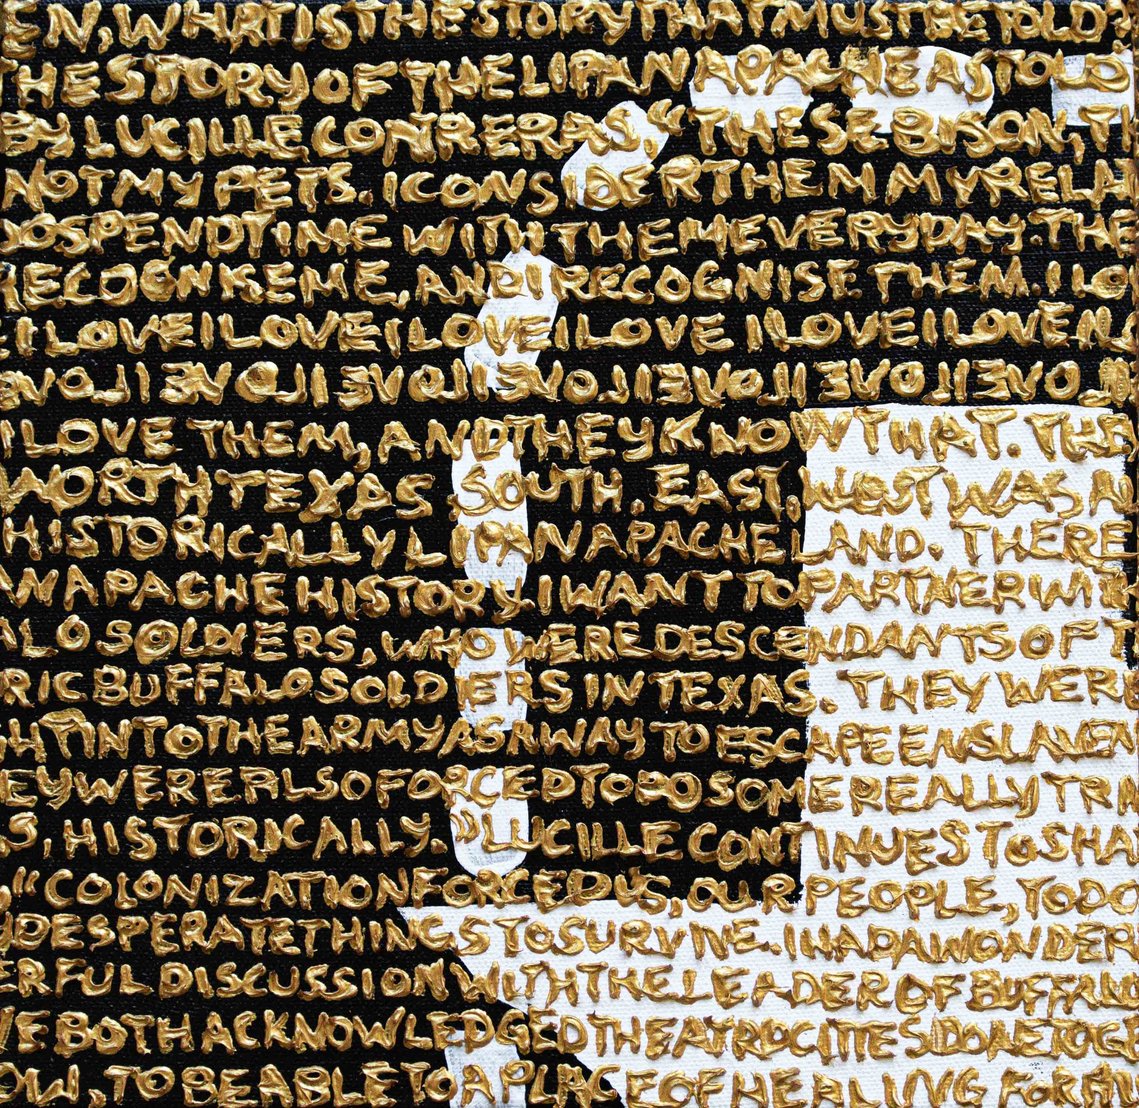 EN, WHAT IS THE STORY THAT MUST BE TOLD?
HE STORY OF THE LIPAN APACHE AS TOLD
BY LUCILLE CONTRERAS. " THESE BISON, T
NOT MY PETS. I CONSIDER THEM MY RELA
SPEND TIME WITH THEM EVERY DAY. THE
RECOGNISE ME, AND I RECOGNISE THEM. I LO
E I LOVE I LOVE I LOVE I LOVE I LOVE I LOVE I LOVE
LOVE I LOVE I LOVE I LOVE I LOVE I LOVE I LOVE
I LOVE THEM, AND THEY KNOW THAT. THE
NORTH TEXAS. SOUTH. EAST. WEST WAS A
HISTORICALLY LIPAN APACHE LAND. THERE
N APACHE HISTORY. I WANT TO PARTNER WITH
ALO SOLDIERS, WHO WERE DESCENDANTS OF T
RIC BUFFALO SOLDIERS IN TEXAS. THEY WERE
INTO THE ARMY AS A WAY TO ESCAPE ENSLAVEM
EY WERE ALSO FORCED TO DO SOME REALLY TRA
S. HISTORICALLY." LUCILLE CONTINUES TO SHA
"COLONIZATION FORCED US, OUR PEOPLE, TO DO
DESPERATE THINGS TO SURVIVE. I HAD A WONDER
ERFUL DISCUSSION WITH THE LEADER OF BUFFALO
VE BOTH ACKNOWLEDGED THE ATROCITIES DONE TOGE
OW, TO BE ABLE TO A PLACE OF HEALING FOR